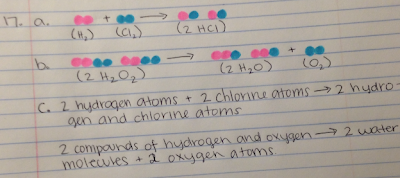 17. a. + →
(H₂) (Cl₂) (2 HCl)
b. → +
(2 H₂O₂) (2 H₂O) (O₂)
c. 2 hydrogen atoms + 2 chlorine atoms → 2 hydro-
gen and chlorine atoms
2 compounds of hydrogen and oxygen → 2 water
molecules + 2 oxygen atoms